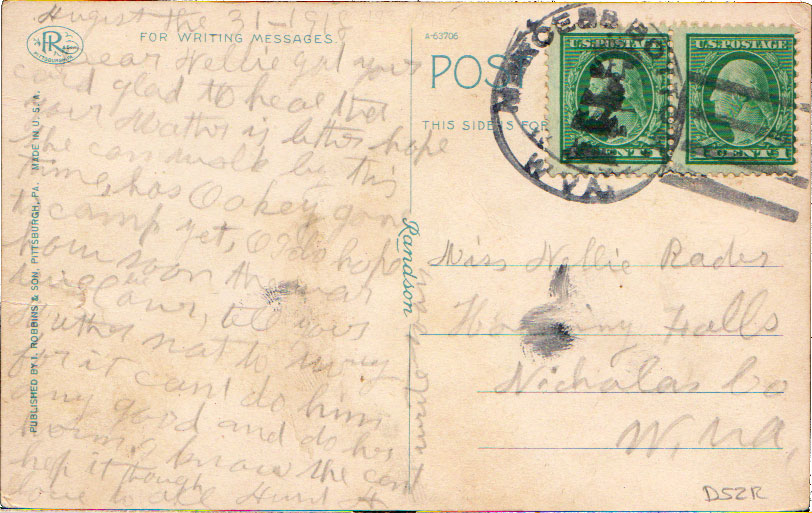 August the 31-1918
dear Nellie got your
card glad to hear that
your Mother is better hope
she can walk by this
time, has Oakey gone
to camp yet, O I do hope
soon the war
will
Mother not to worry
for it cant do him
any good and do her
harm I know she cant
help it though
love to all
FOR WRITING MESSAGES.
PITTSBURGH
PUBLISHED BY I. ROBBINS & SON, PITTSBURGH, PA. MADE IN U.S.A.
Randson
A-63706
POS
THIS SIDE IS FOR
U.S. POSTAGE
CENT 1
U.S. POSTAGE
1 CENT 1
W.VA.
Miss Nellie Rader
Falls
Nicholas Co
W, Va,
D52R